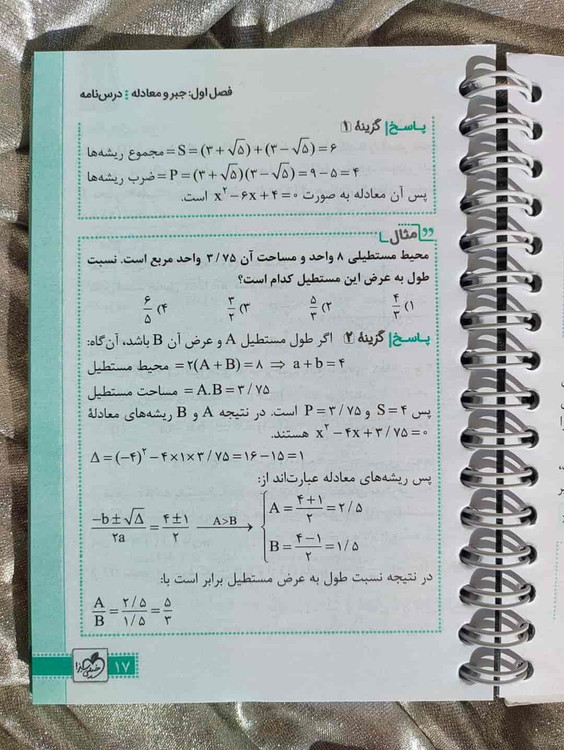 فصل اول: جبر و معادله درس‌نامه
پاسخ گزینهٔ ۱
مجموع ریشه‌ها = S = (۳+√۵)+(۳−√۵) = ۶
ضرب ریشه‌ها = P = (۳+√۵)(۳−√۵) = ۹−۵ = ۴
پس آن معادله به صورت x² − ۶x + ۴ = ۰ است.
مثال
محیط مستطیلی ۸ واحد و مساحت آن ۳/۷۵ واحد مربع است. نسبت
طول به عرض این مستطیل کدام است؟
۱) ۴/۳ ۲) ۵/۳ ۳) ۳/۲ ۴) ۶/۵
پاسخ گزینهٔ ۲ اگر طول مستطیل A و عرض آن B باشد، آن‌گاه:
محیط مستطیل = ۲(A+B) = ۸ ⇒ a+b = ۴
مساحت مستطیل = A.B = ۳/۷۵
پس S = ۴ و P = ۳/۷۵ است. در نتیجه A و B ریشه‌های معادلهٔ
x² − ۴x + ۳/۷۵ = ۰ هستند.
Δ = (−۴)² − ۴×۱×۳/۷۵ = ۱۶ − ۱۵ = ۱
پس ریشه‌های معادله عبارت‌اند از:
(−b±√Δ)/۲a = (۴±۱)/۲ A>B → { A = (۴+۱)/۲ = ۲/۵
B = (۴−۱)/۲ = ۱/۵
در نتیجه نسبت طول به عرض مستطیل برابر است با:
A/B = (۲/۵)/(۱/۵) = ۵/۳
۱۷